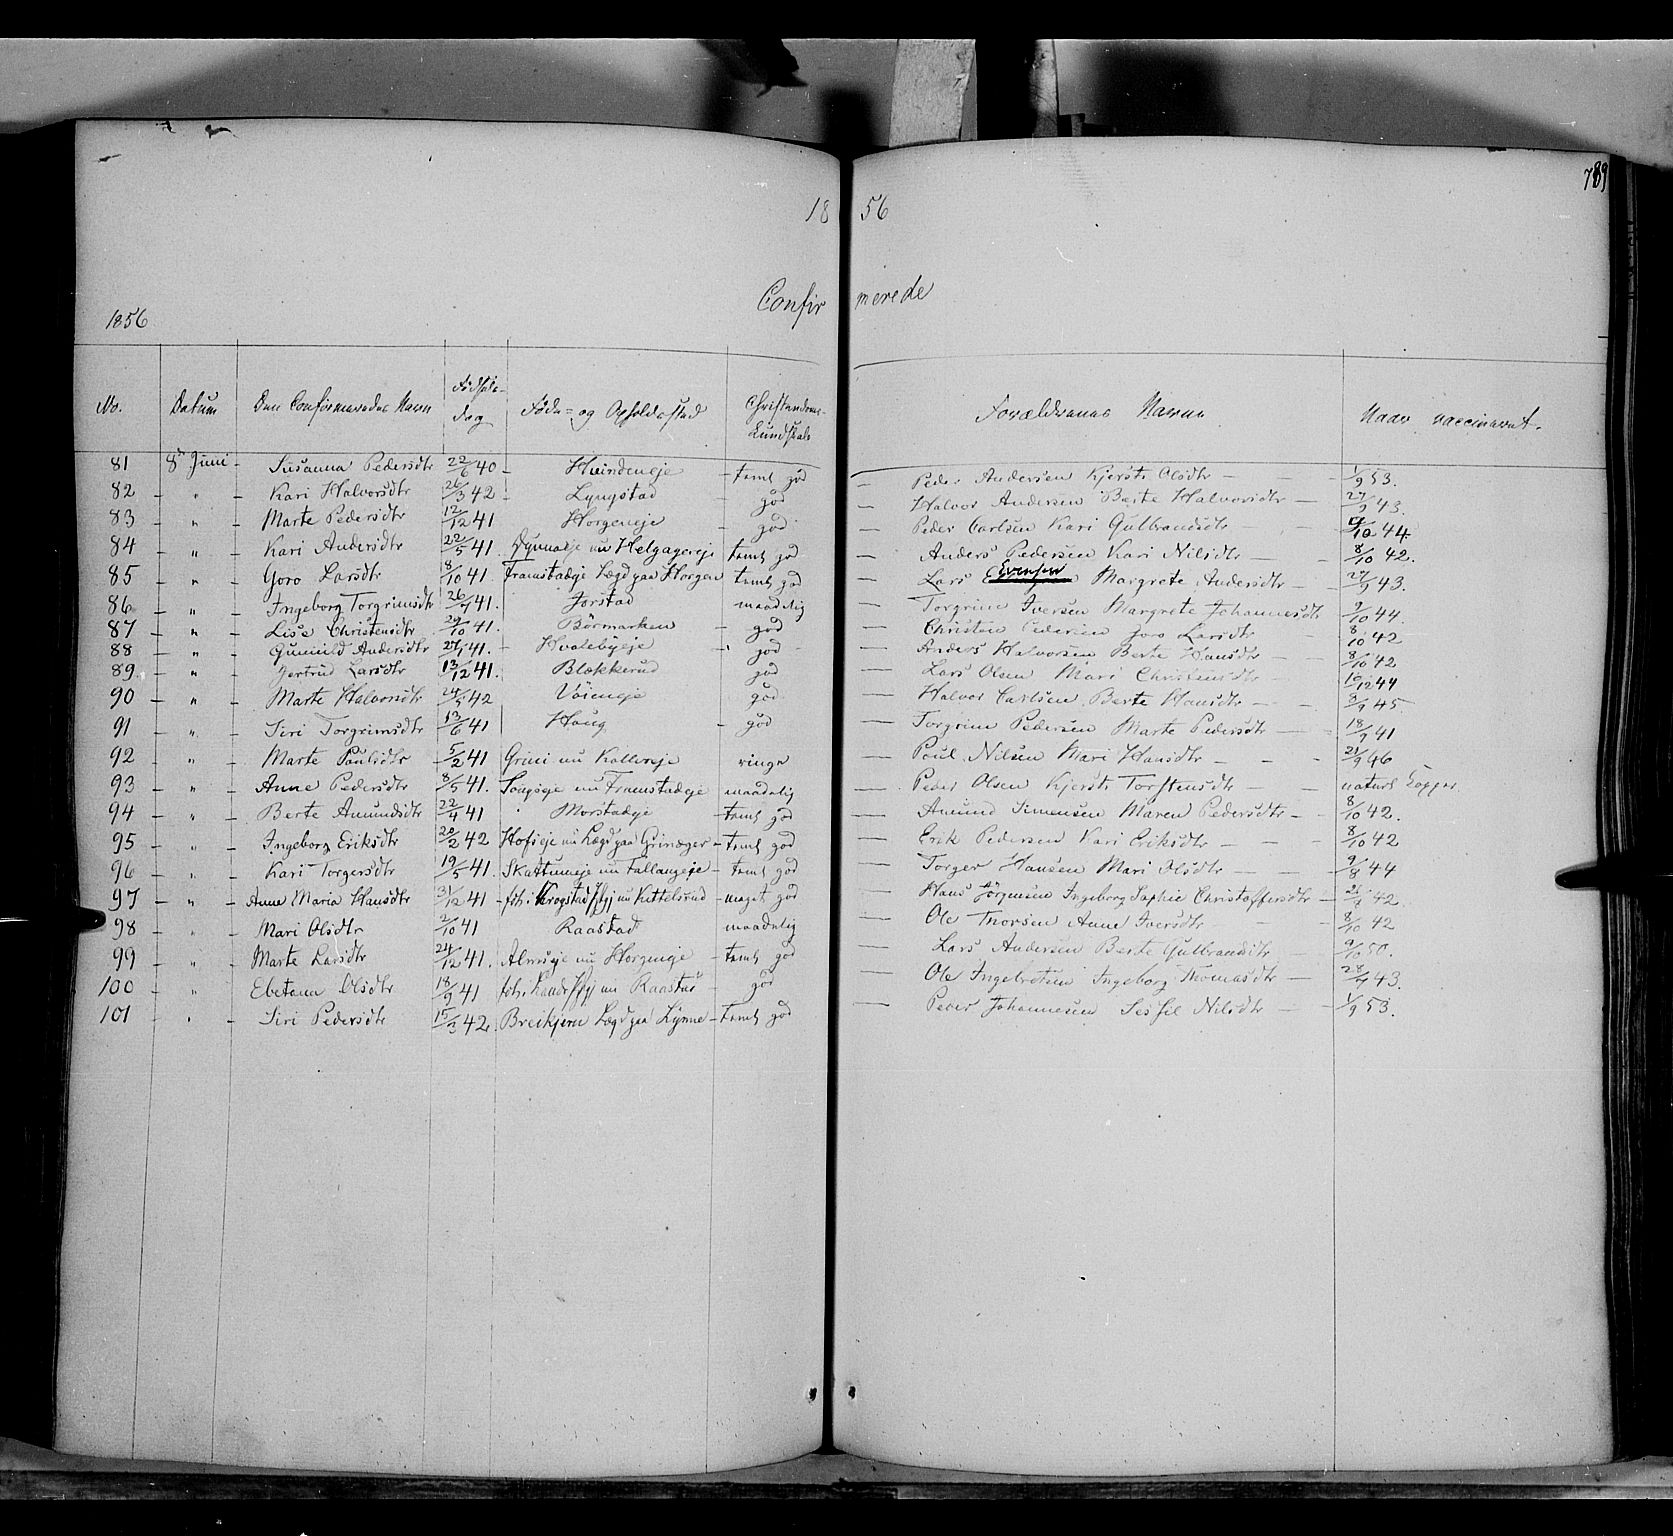 789
18 56
Confir merede
1856
No. Datum Den Confirmeredes Navn Fødsels-Dag Føde- og Opholdsstad Christendoms-Kundskab Forældrenes Navne Naar vaccineret.
81 8de Juni - Susanna Pedersdtr 22/6 40 - Hvindeneje - temt god - Peder Andersen Kjersti Olsdtr - 1/9 53.
82 - " - Kari Halvorsdtr 26/3 42 - Lyngstad - god - Halvor Andersen Berte Halvorsdtr - 27/9 43.
83 - " - Marte Pedersdtr 12/12 41 Horgeneje - god - Peder Carlsen Kari Gulbrandsdtr - /10 44
84 - " - Kari Andersdtr 22/5 41. nu Helgagereje temt god - Anders Pedersen Kari Nilsdtr - 8/10 42.
85 - " - Goro Larsdtr 8/10 41. Framstadeje Lægd paa Horgen temt god - Lars Evensen Margrete Andersdtr - 27/9 43.
86 - " - Ingeborg Torgrimsdtr 26/ 41. Jorstad maadelig - Torgrim Iversen Margrete Johannesdtr 9/10 44.
87 - " - Lise Christensdtr 29/10 41. Börmarken - god - Christen Pedersen Goro Larsdtr - 8/10 42
88 - " - Gunnild Andersdtr 27/1 41. - Hvalebyeje - god - Anders Halvorsen Berte Hansdtr - 8/10 42
89. - " - Gjertrud Larsdtr 13/12 41. Blekkerud god - Lars Olsen Mari Christensdtr 10/12 44
90 - " - Marte Halvorsdtr 24/5 42 Vöieneje god - Halvor Carlsen Berte Hansdtr - - 9/9 45.
91 - " - Siri Torgrimsdtr 13/6 41 Haug - god - Torgrim Pedersen Marte Pedersdtr - 18/9 41
92 - " - Marte Paulsdtr - 5/2 41 Grini nu ringe - Poul Nilsen Mari Hansdtr - - - 21/9 46
93 - " - Anne Pedersdtr 8/5 41. nu Framstadeje maadelig - Peder Olsen Kjersti Torstensdtr - - naturl Kopper
94 - " - Berte Amundsdtr 22/4 41 Morstadeje - temt god - Amund Simensen Maren Pedersdtr - - 8/10 42.
95 - " - Ingeborg Eriksdtr 20/2 42 Hofseje nu Lægd paa Grinager - temt god - Erik Pedersen Kari Eriksdtr - - - 8/10 42
96 - " - Kari Torgersdtr 19/5 41. Skattumeje nu Fallangeje - temt god - Torger Hansen Mari Olsdtr - - - 9/8 44
97 - " - Anne Maria Hansdtr 3/12 41 - nu Kittelsrud - meget god - Hans Jörgensen Ingeborg Sophie Christoffersdtr - 42.
98 - " - Mari Olsdtr 2/10 41 Raastad maadelig - Ole Thorsen Anne Iversdtr - 8/10 42
99 - " - Marte Larsdtr 24/12 41. Almseje nu Horgeneje - temt god - Lars Andersen Berte Gulbrandsdtr - 9/10 50.
100 - " - Ebetana Olsdtr 18/9 41 nu Raastad - god - Ole Ingebretsen Ingeborg Thomasdtr - 28/9 43.
101 - " - Siri Pedersdtr 15/3 42. Breikjern Lægd paa Lynne - temt god - Peder Johannesen Sessel Nilsdtr - 1/9 53.